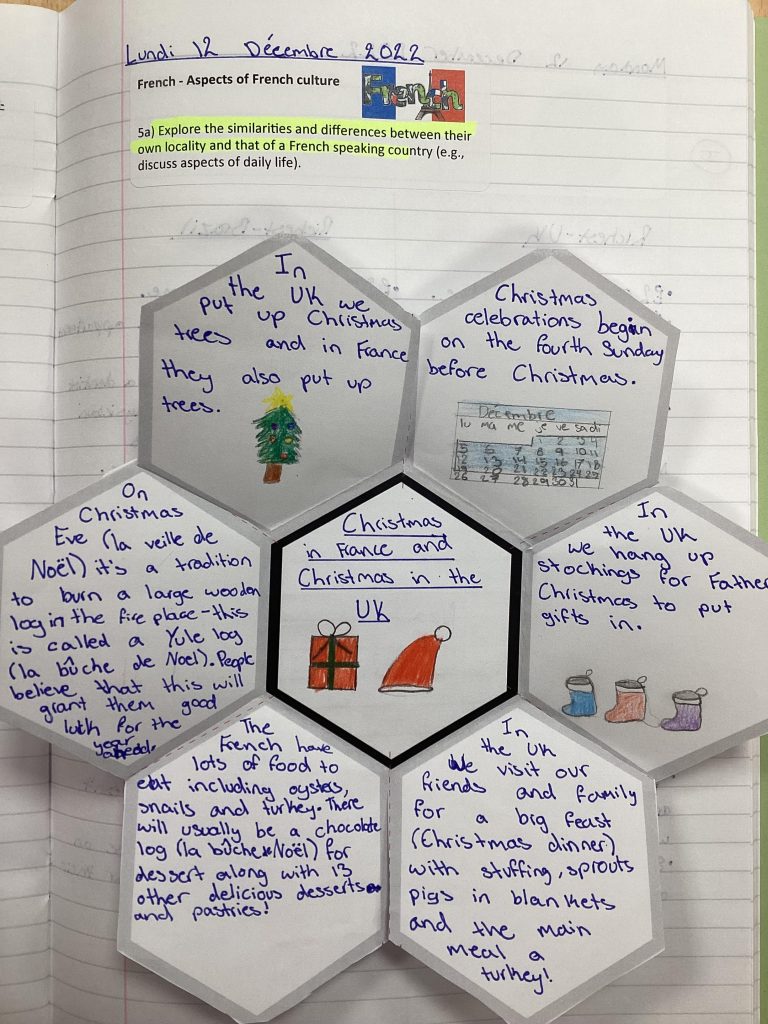 Lundi 12 Décembre 2022
French - Aspects of French culture
French
5a) Explore the similarities and differences between their
own locality and that of a French speaking country (e.g.,
discuss aspects of daily life).
In
the UK we
put up Christmas
trees and in France
they also put up
trees.
Christmas
celebrations begin
on the fourth Sunday
before Christmas.
Décembre
lu ma me je ve sa di
1 2 3 4
5 6 7 8 9 10 11
12 13 14 15 16 17 18
19 20 21 22 23 24 25
26 27 28 29 30 31
On
Christmas
Eve (la veille de
Noël) it's a tradition
to burn a large wooden
log in the fire place - this
is called a Yule log
(la bûche de Noel). People
believe that this will
grant them good
luck for the
year
Christmas
in France and
Christmas in the
UK
In
the UK
we hang up
stockings for Father
Christmas to put
gifts in.
The
French have
lots of food to
eat including oysters,
snails and turkey. There
will usually be a chocolate
log (la bûche Noël) for
dessert along with 13
other delicious desserts
and pastries!
In
the UK
We visit our
friends and family
for a big feast
(Christmas dinner)
with stuffing, sprouts
pigs in blankets
and the main
meal a
turkey!